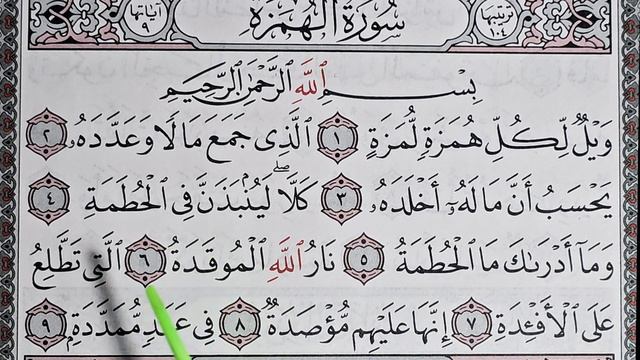 ترتيبها ١٠٤ سُورَةُ الْهُمَزَةِ آياتها ٩
بِسْمِ اللَّهِ الرَّحْمَٰنِ الرَّحِيمِ
وَيْلٌ لِّكُلِّ هُمَزَةٍ لُّمَزَةٍ ١ الَّذِى جَمَعَ مَالًا وَعَدَّدَهُۥ ٢
يَحْسَبُ أَنَّ مَالَهُۥٓ أَخْلَدَهُۥ ٣ كَلَّا ۖ لَيُنۢبَذَنَّ فِى الْحُطَمَةِ ٤
وَمَآ أَدْرَىٰكَ مَا الْحُطَمَةُ ٥ نَارُ اللَّهِ الْمُوقَدَةُ ٦ الَّتِى تَطَّلِعُ
عَلَى الْأَفْـِٔدَةِ ٧ إِنَّهَا عَلَيْهِم مُّؤْصَدَةٌ ٨ فِى عَمَدٍ مُّمَدَّدَةٍۭ ٩